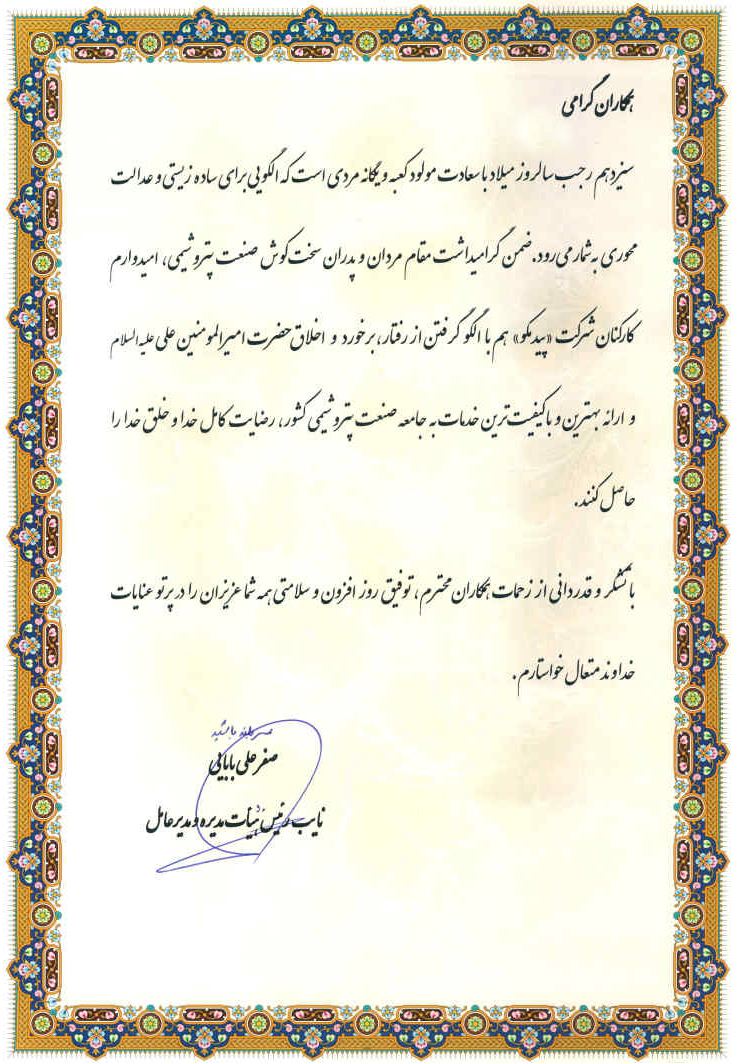 همکاران گرامی
سیزدهم رجب سالروز میلاد با سعادت مولود کعبه و یگانه مردی است که الگویی برای ساده زیستی و عدالت
محوری به شمار می رود. ضمن گرامیداشت مقام مردان و پدران سخت کوش صنعت پتروشیمی، امیدوارم
کارکنان شرکت «پیدمکو» هم با الگو گرفتن از رفتار، برخورد و اخلاق حضرت امیرالمومنین علی علیه السلام
و ارائه بهترین و باکیفیت ترین خدمات به جامعه صنعت پتروشیمی کشور، رضایت کامل خدا و خلق خدا را
حاصل کنند.
با تشکر و قدردانی از زحمات همکاران محترم، توفیق روز افزون و سلامتی همه شما عزیزان را در پرتو عنایات
خداوند متعال خواستارم.
باشید
صفر علی بابائی
نایب رئیس هیات مدیره و مدیر عامل